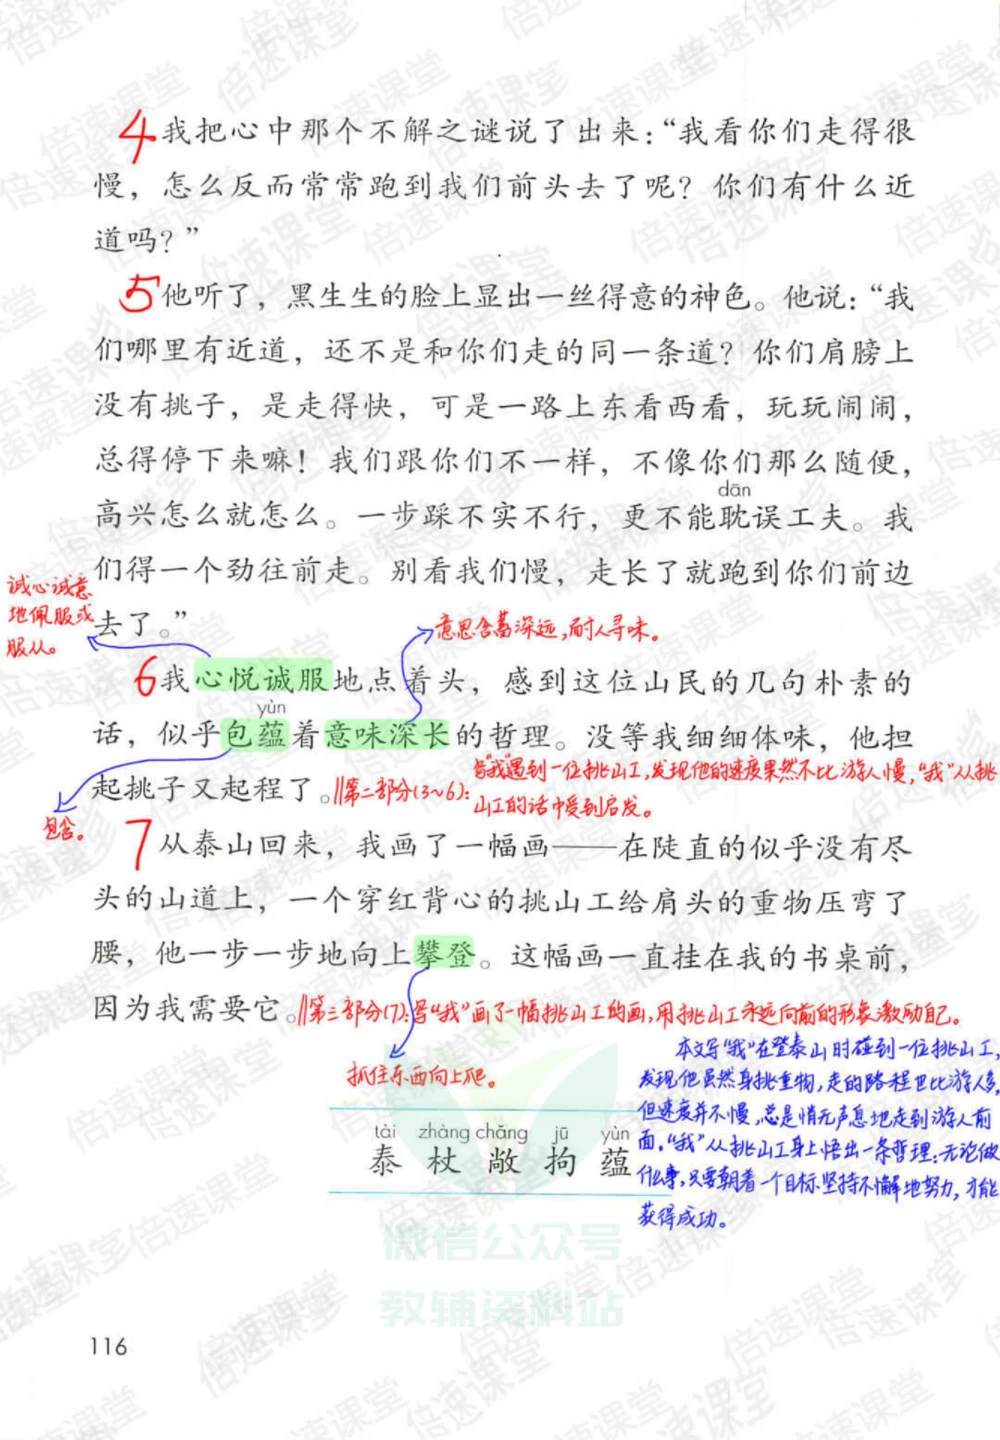 4我把心中那个不解之谜说了出来：“我看你们走得很
慢，怎么反而常常跑到我们前头去了呢？你们有什么近
道吗？”
5他听了，黑生生的脸上显出一丝得意的神色。他说：“我
们哪里有近道，还不是和你们走的同一条道？你们肩膀上
没有挑子，是走得快，可是一路上东看西看，玩玩闹闹，
总得停下来嘛！我们跟你们不一样，不像你们那么随便，
dān
高兴怎么就怎么。一步踩不实不行，更不能耽误工夫。我
们得一个劲往前走。别看我们慢，走长了就跑到你们前边
去了。”
诚心诚意
地佩服或
服从。
意思含蓄深远，耐人寻味。
6我心悦诚服地点着头，感到这位山民的几句朴素的
yùn
话，似乎包蕴着意味深长的哲理。没等我细细体味，他担
起挑子又起程了。
‖第二部分(3~6)：
写“我”遇到一位挑山工，发现他的速度果然不比游人慢，“我”从挑
山工的话中受到启发。
包含。
7从泰山回来，我画了一幅画——在陡直的似乎没有尽
头的山道上，一个穿红背心的挑山工给肩头的重物压弯了
腰，他一步一步地向上攀登。这幅画一直挂在我的书桌前，
因为我需要它。
‖第三部分(7)：写“我”画了一幅挑山工的画，用挑山工永远向前的形象激励自己。
抓住东西向上爬。
本文写“我”在登泰山时碰到一位挑山工，
发现他虽然身挑重物，走的路程也比游人多，
但速度并不慢，总是悄无声息地走到游人前
面。“我”从挑山工身上悟出一条哲理：无论做
什么事，只要朝着一个目标坚持不懈地努力，才能
获得成功。
tài zhàng chǎng jū yùn
泰 杖 敞 拘 蕴
微信公众号
教辅资料站
116
倍速课堂